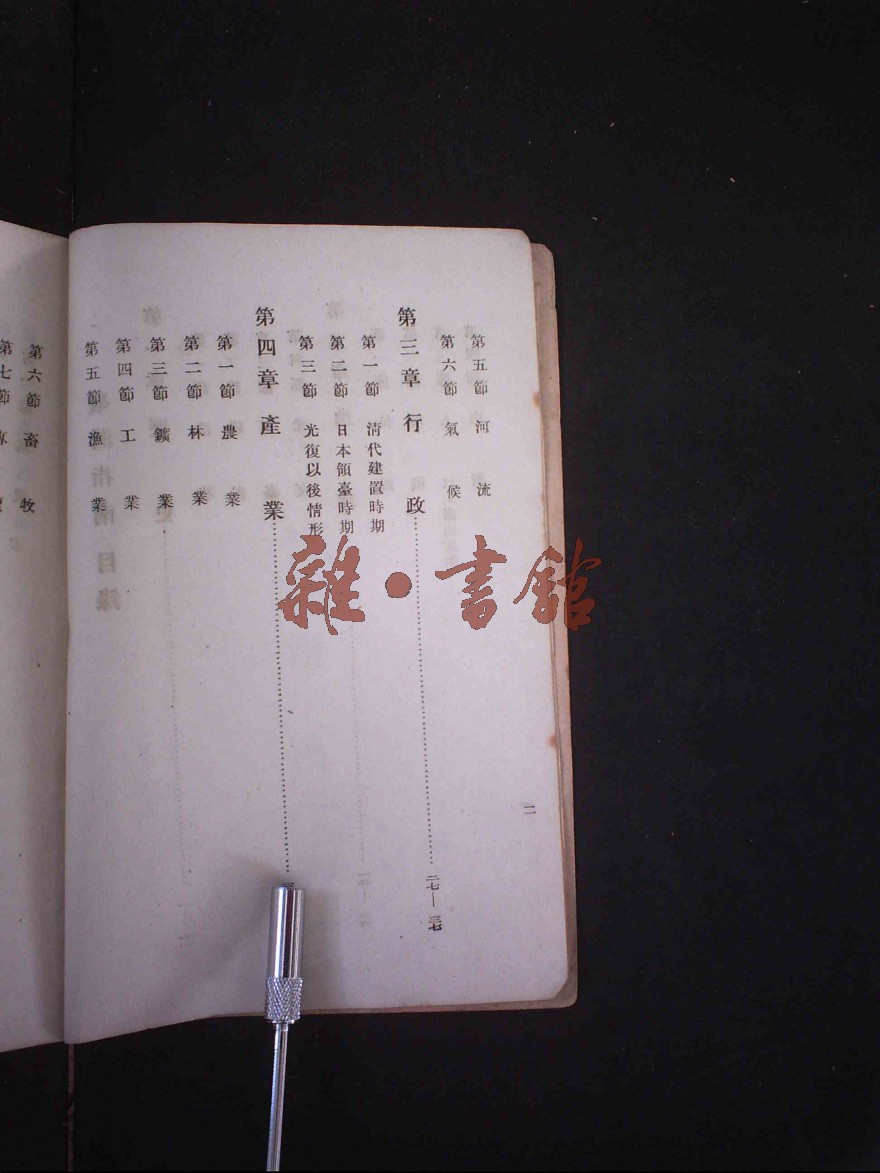 第五節 河流
第六節 氣候
第三章 行政……二七—三七
第一節 清代建置時期
第二節 日本領臺時期
第三節 光復以後情形
第四章 產業……
第一節 農業
第二節 林業
第三節 鑛業
第四節 工業
第五節 漁業
二
第六節 畜牧
第七節
雜·書館